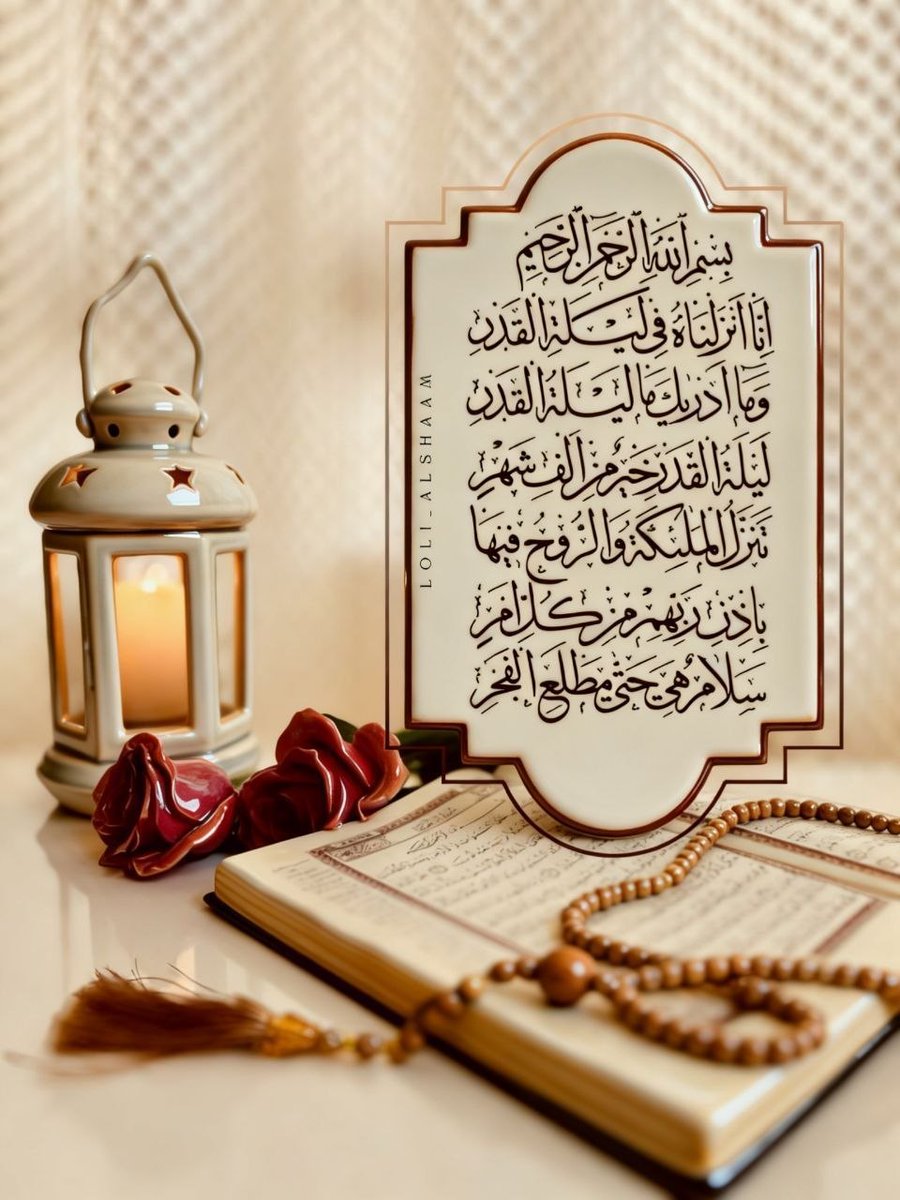 بِسْمِ اللهِ الرَّحْمٰنِ الرَّحِيْمِ
اِنَّا اَنْزَلْنَاهُ فِي لَيْلَةِ الْقَدْرِ
وَمَا اَدْرٰيكَ مَا لَيْلَةُ الْقَدْرِ
لَيْلَةُ الْقَدْرِ خَيْرٌ مِنْ اَلْفِ شَهْرٍ
تَنَزَّلُ الْمَلٰئِكَةُ وَالرُّوْحُ فِيْهَا
بِاِذْنِ رَبِّهِمْ مِنْ كُلِّ اَمْرٍ
سَلَامٌ هِيَ حَتّٰى مَطْلَعِ الْفَجْرِ
LOLI_ALSHAAM